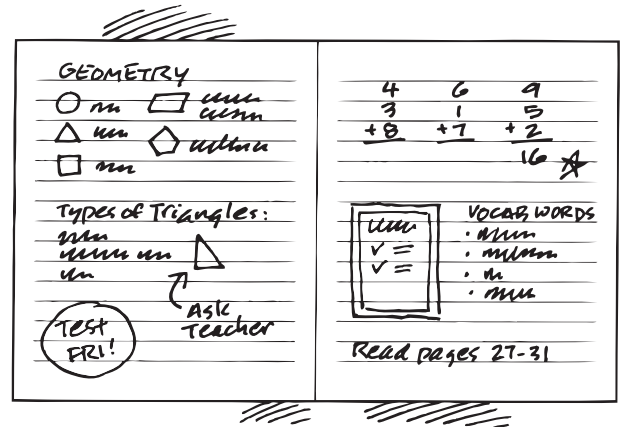 GEOMETRY
Types of Triangles:
Ask
Teacher
Test
FRI!
4 6 9
3 1 5
+8 +7 +2
16
VOCAB WORDS
Read pages 27-31